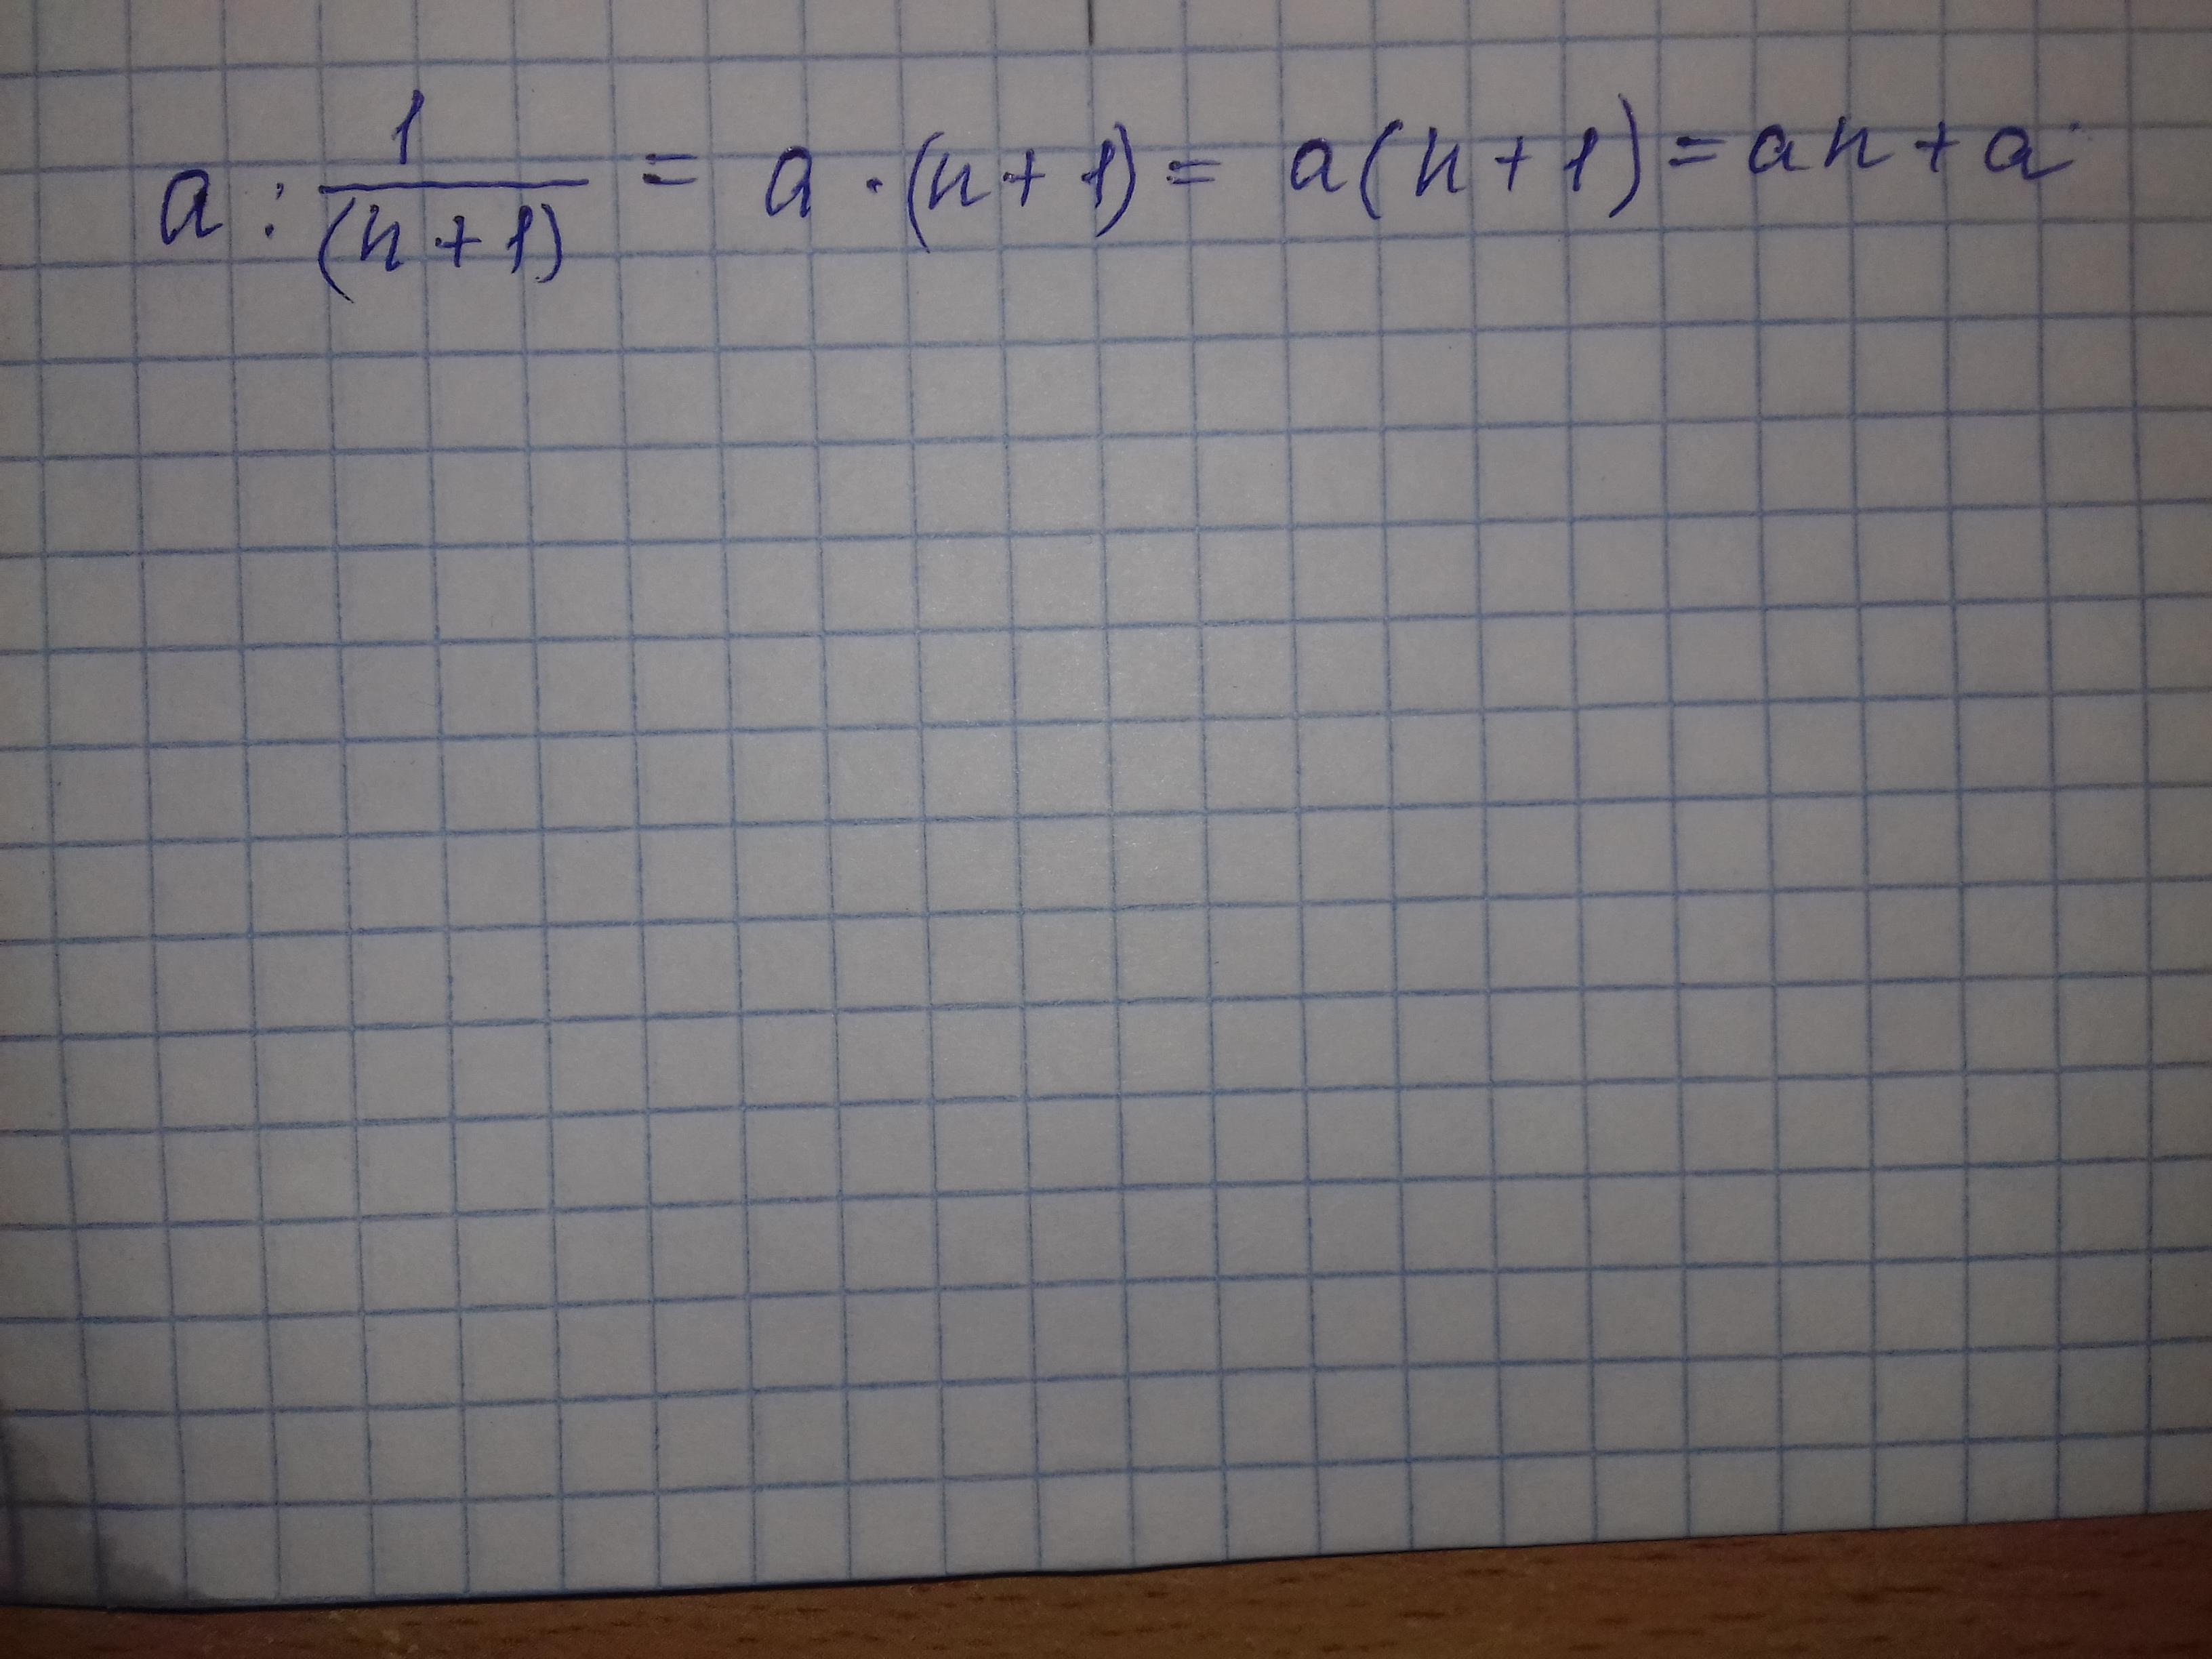 a : 1/(n+1) = a · (n+1) = a(n+1) = an + a